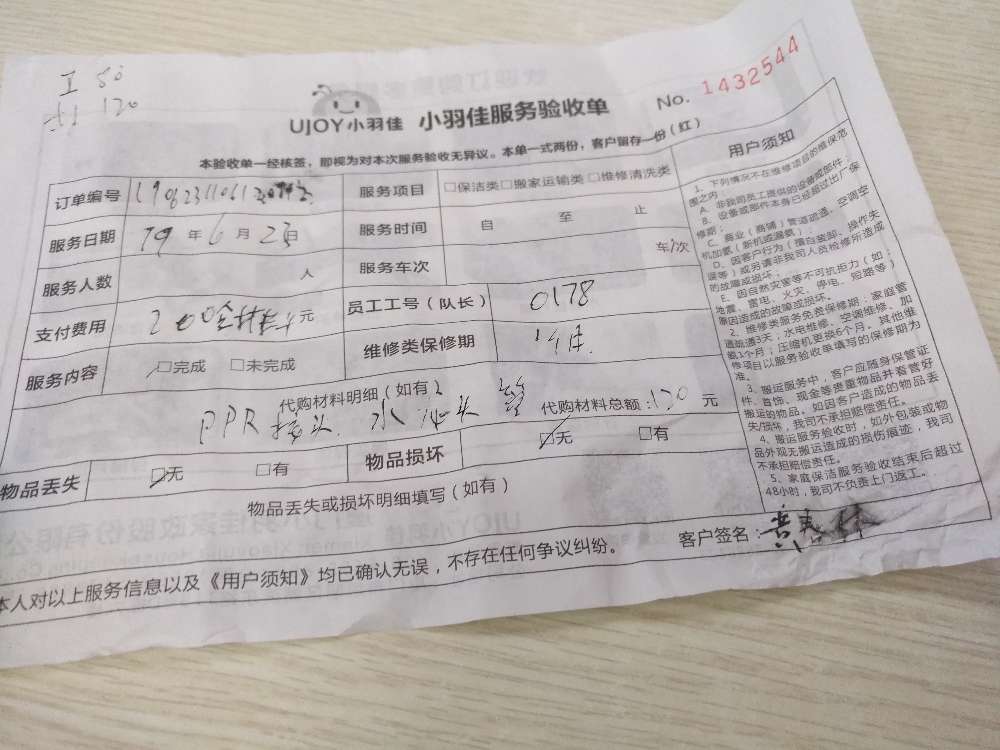 工 80
材 120
UJOY小羽佳 小羽佳服务验收单 No. 1432544
本验收单一经核签，即视为对本次服务验收无异议。本单一式两份，客户留存一份（红）
订单编号
服务项目 □保洁类□搬家运输类□维修清洗类
服务日期 19 年 6 月 23日
服务时间 自 至 止
服务人数 人
服务车次 车次
支付费用 200 元
员工工号（队长） 0178
服务内容 □完成 □未完成
维修类保修期
代购材料明细（如有）
PPR 接头 水 代购材料总额：120 元
物品丢失 □无 □有
物品损坏 □无 □有
物品丢失或损坏明细填写（如有）
本人对以上服务信息以及《用户须知》均已确认无误，不存在任何争议纠纷。
客户签名：
用户须知
1、下列情况不在维修项目的维保范
围之内：
A、非我司员工提供的设备或部件；
B、设备或部件本身已经超过出厂保
修期；
C、商业（商铺）管道疏通、空调空
机加氨（新机或漏氨）；
D、因客户行为（擅自装卸、操作失
误等）或另请非我司人员检修所造成
的故障或损坏；
E、因自然灾害等不可抗拒力（如：
地震、雷电、火灾、停电、短路等）
原因造成的故障或损坏。
2、维修类服务免费保修期：家庭管
道疏通3天；水电维修、空调维修、加
氨1个月；压缩机更换6个月，其他维
修项目以服务验收单填写的保修期为
准。
3、搬运服务中，客户应随身保管证
件、首饰、现金等贵重物品并看管好
搬运的物品，如因客户造成的物品丢
失/损坏，我司不承担赔偿责任。
4、搬运服务验收时，如外包装或物
品外观无搬运造成的损伤痕迹，我司
不承担赔偿责任。
5、家庭保洁服务验收结束后超过
48小时，我司不负责上门返工。